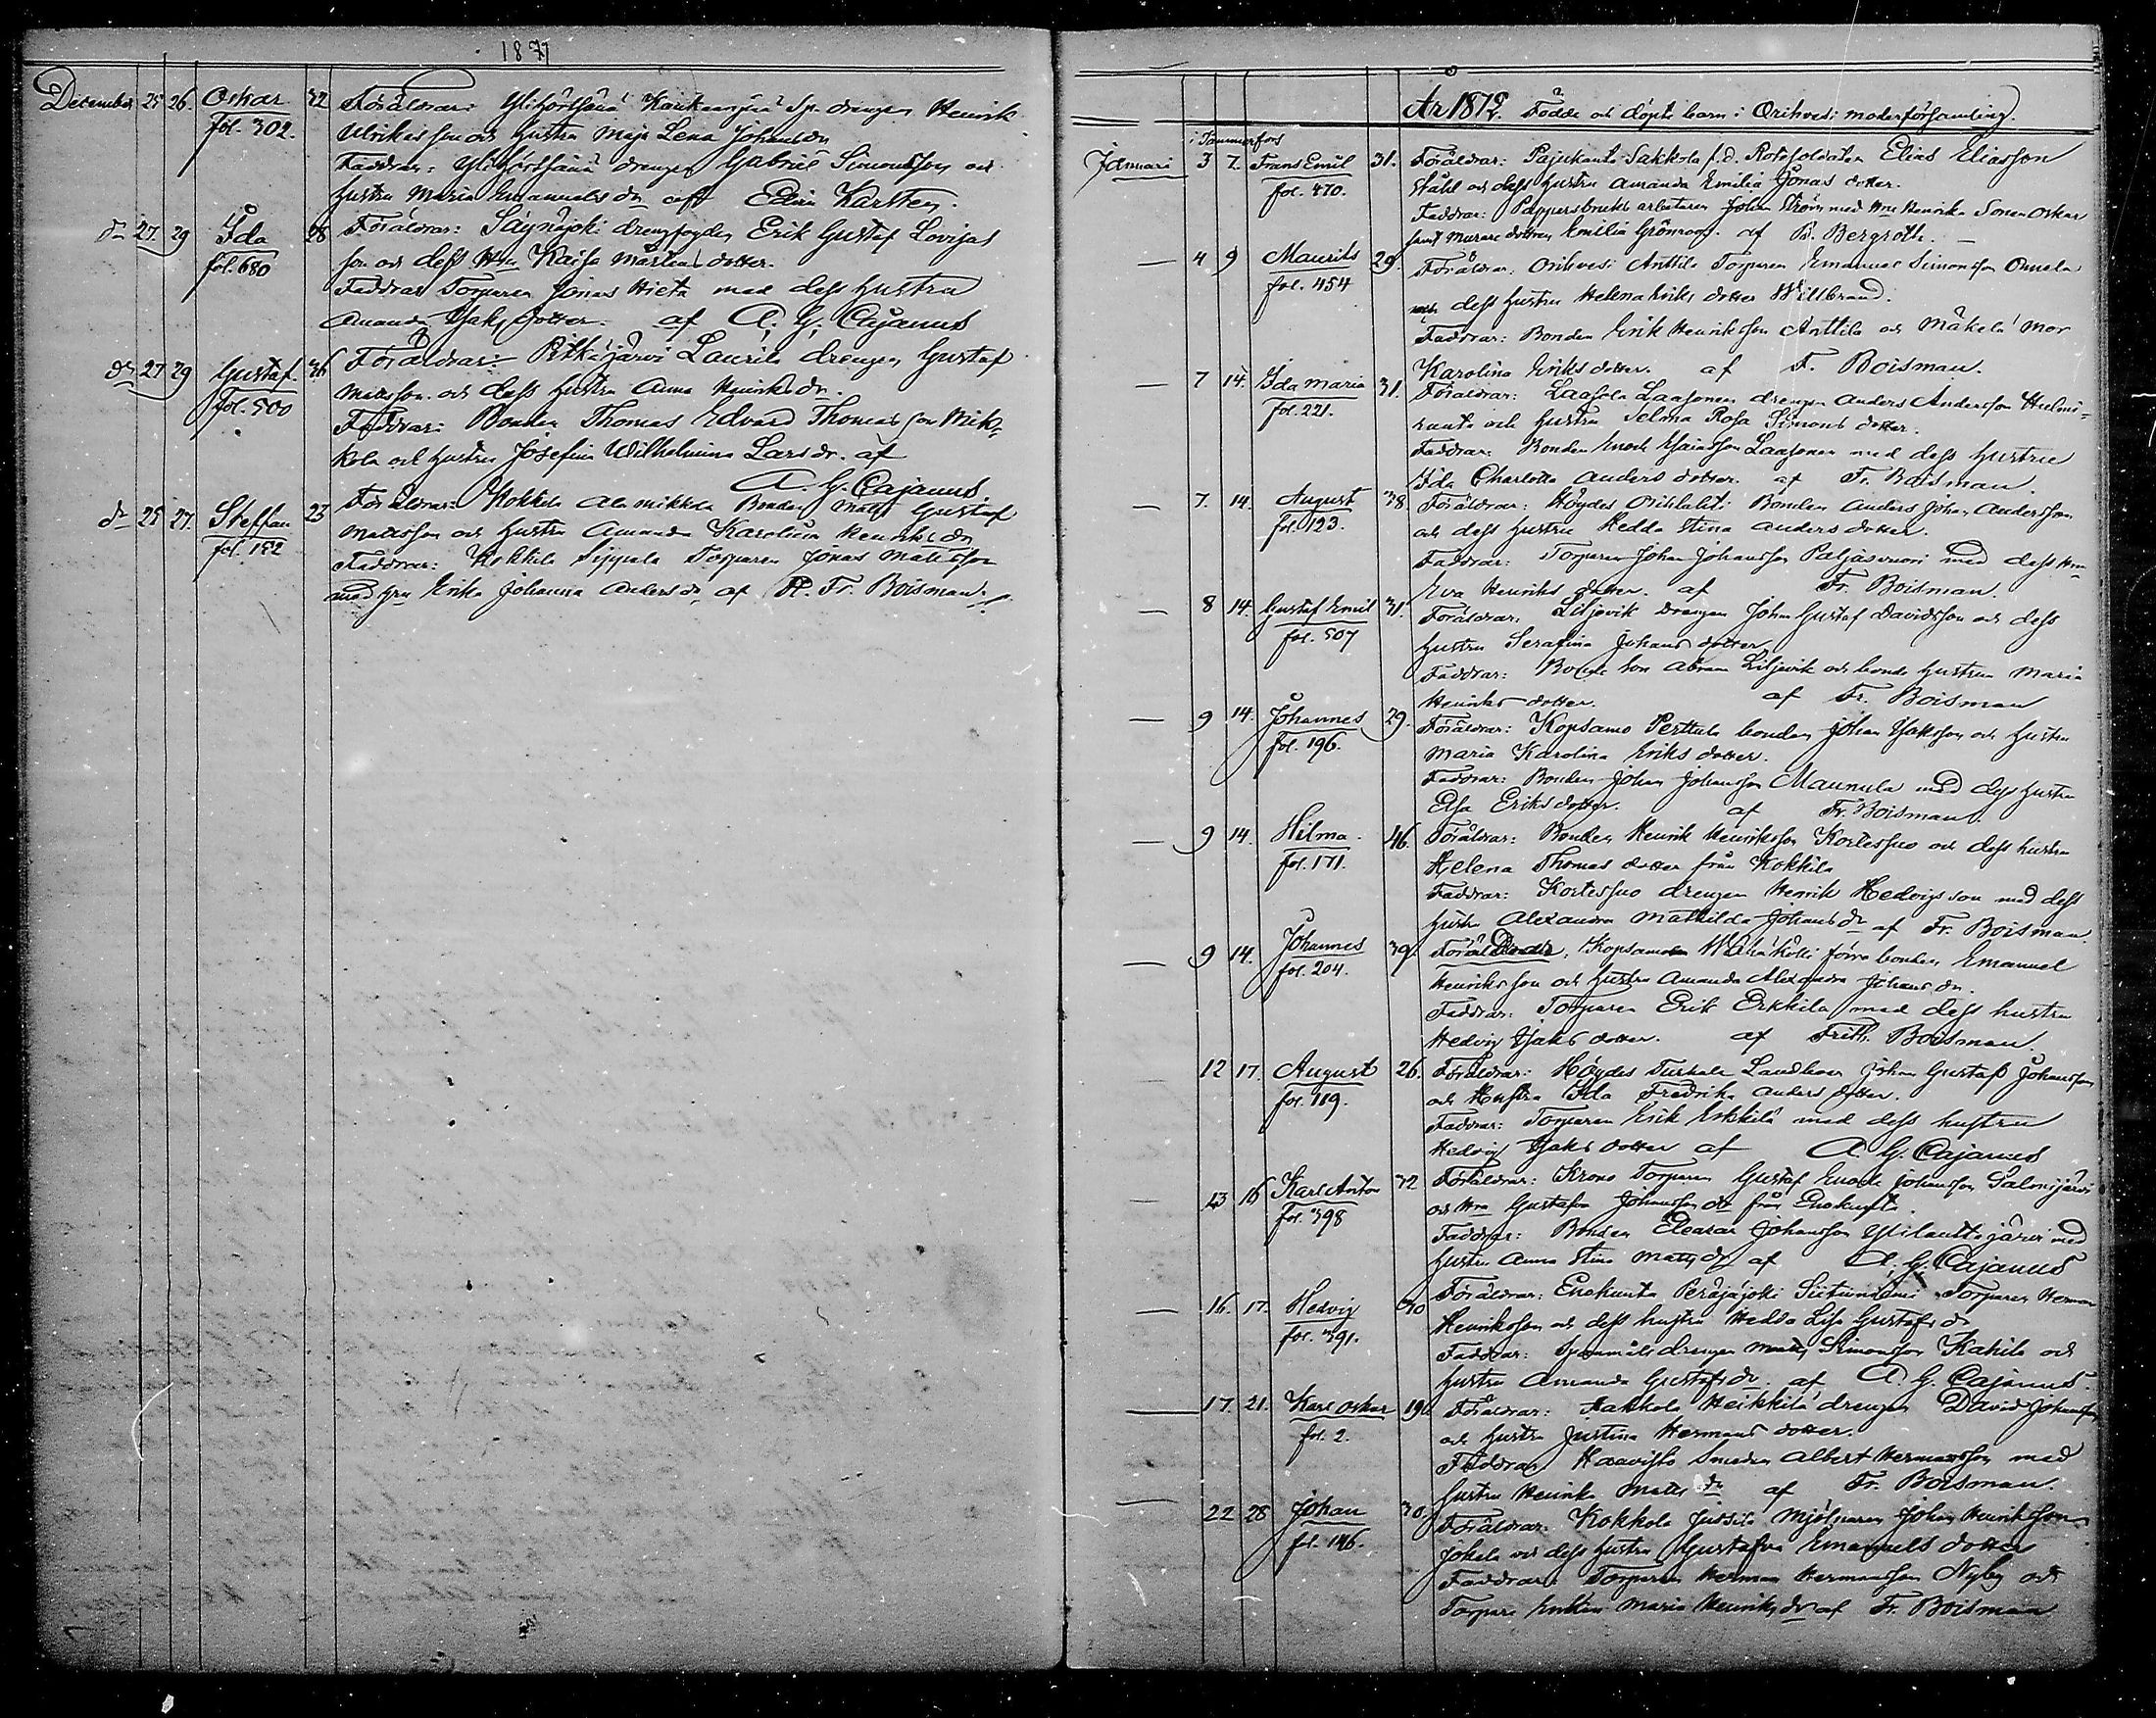 1871
December 25 26. Oskar 32 Föräldrar: Ylihörhänä Kankaanpää Sp. drängen Henrik
fol. 302. Ulrikasson och hustru Maja Lena Johansdr
Faddrar: Ylihörhänä drengen Gabriel Simonsson och
hustru Maria Emanuelsdr af Edv. Karsten.
dn 27 29 Ida 28 Föräldrar: Säynäjoki drengfogden Erik Gustaf Lovisas
fol. 680 son och dess Hru Kaisa Mårtensdotter.
Faddrar Torparen Jonas Hieta med dess hustru
Amanda Isaksdotter. af A. G. Cajanus
dn 27 29 Gustaf 36 Föräldrar: Pitkäjärvi Laurila drengen Gustaf
fol. 500 Mattsson och dess hustru Anna Henriksdr.
Faddrar: Bonden Thomas Edvard Thomasson Mik-
kola och hustru Josefina Wilhelmina Larsdr. af
A. G. Cajanus.
dn 25 27. Steffan 23 Föräldrar: Kokkila Alamikkola Bonden Matts Gustaf
fol. 152 Mattsson och hustru Amanda Karolina Henriksdr
Faddrar: Kokkila Sippala Torparen Jonas Mattsson
med hru Erika Johanna Andersdr af Fr. Boisman.
År 1872. Födde och döpte barn i Orihvesi moderförsamling.
i Tammerfors
Januari 3 7. Frans Emil 31. Föräldrar: Pajukanta Sakkola f.d. Rotesoldaten Elias Eliasson
fol. 470. Ståhl och dess hustru Amanda Emilia Jonasdotter.
Faddrar: Pappersbruks arbetaren Johan Ström med Hru Henrika Sonen Oskar
samt Murare dottren Emilia Grönroos. af B. Bergroth.
4 9 Maurits 29. Föräldrar: Orihvesi Anttila Torparen Emanuel Simonsson Onnela
fol. 454 och dess hustru Helena Eriksdotter Willbrand.
Faddrar: Bonden Erik Henriksson Anttila och Mäkelä Mor
Karolina Eriksdotter. af F. Boisman.
7 14. Ida Maria 31. Föräldrar: Laasola Laasonen drengen Anders Andersson Hulmi-
fol. 221. ranta och hustru Selma Rosa Simonsdotter.
Faddrar: Bonden Enock Esaiasson Laasonen med dess hustru
Ida Charlotta Andersdotter. af Fr. Boisman.
7. 14. August 38 Föräldrar: Höydes Orihlahti Bonden Anders Johan Andersson
fol. 123. och dess hustru Hedda Stina Andersdotter.
Faddrar: Torparen Johan Johansson Paljasvuori med dess Hru
Eva Henriksdotter. af Fr. Boisman.
8 14. Gustaf Emil 31. Föräldrar: Liljevik drengen Johan Gustaf Davidsson och dess
fol. 507 hustru Serafina Johansdotter
Faddrar: Bonde Son Abram Liljevik och bonde hustrun Maria
Henriksdotter. af Fr. Boisman
9 14. Johannes 29. Föräldrar: Kopsamo Perttula bonden Johan Isaksson och hustru
fol. 196. Maria Karolina Eriksdotter.
Faddrar: Bonden Johan Johansson Maunula med dess hustru
Elsa Eriksdotter. af Fr. Boisman.
9 14. Hilma 46. Föräldrar: Bonden Henrik Henriksson Kortessuo och dess hustru
fol. 171. Helena Thomasdotter från Kokkila
Faddrar: Kortessuo drengen Henrik Hedvigsson med dess
hustru Alexandra Mathilda Johansdr af Fr. Boisman.
9 14. Johannes 39. Föräldrar, Kopsamo Wähäkolli förra bonden Emanuel
fol. 204. Henriksson och hustru Amanda Alexandra Johansdr.
Faddrar: Torparen Erik Erkkilä med dess hustru
Hedvig Isaksdotter. af Frith. Boisman.
12 17. August 26. Föräldrar: Höydes Turkala Landbon Johan Gustaf Johansson
fol. 119. och Hustru Ida Fredrika Andersdotter.
Faddrar: Torparen Erik Erkkilä med dess hustru
Hedvig Isaksdotter af A. G. Cajanus
13 16 Karl Anton 32 Föräldrar: Krono Torparen Gustaf Enock Johansson Salonjärvi
fol. 398 och Hru Gustafva Johanssondr från Enokunta.
Faddrar: Bonden Eleasar Johansson Ylilauttajärvi med
hustru Anna Stina Mattsdr af A. G. Cajanus
16. 17. Hedvig 40 Föräldrar: Enokunta Peräjäjoki Torparen Herman
fol. 391. Henriksson och dess hustru Hedda Lisa Gustafsdr
Faddrar: drengen Matts Simonsson Kahila och
hustru Amanda Gustafsdr. af A. G. Cajanus.
17. 21. Karl Oskar 19. Föräldrar: Hakkola Heikkilä drengen David Johansson
fol. 2. och hustru Justina Hermansdotter.
Faddrar: Haavisto Smeden Albert Hermansson med
hustru Henrika Mattsdr af Fr. Boisman.
22 28 Johan 30. Föräldrar: Kokkola Jussila Mjölnaren Johan Henriksson
fol. 146. Jokela och dess hustru Gustafva Emanuelsdotter
Faddrar: Torparen Herman Hermansson Nyby och
Torpare Enkan Maria Henriksdr af Fr. Boisman